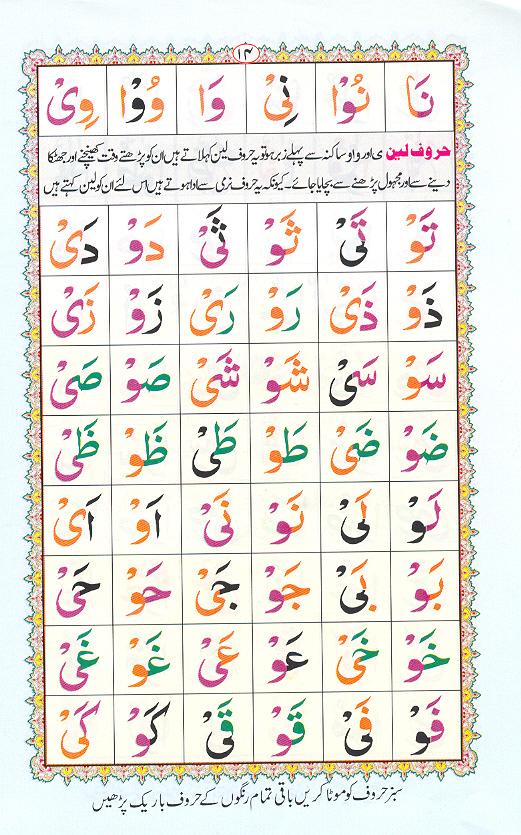 ۱۴
نَا نُوْا نِیْ وَا وُوْا وِیْ
حروف لین ی اور و اوساکنہ سے پہلے زبر ہو تو یہ حروف لین کہلاتے ہیں ان کو پڑھتے وقت کھینچنے اور جھٹکا
دینے سے اور مجہول پڑھنے سے بچایا جائے۔ کیونکہ یہ حروف نرمی سے ادا ہوتے ہیں اس لئے ان کو لین کہتے ہیں
تَوْ تَیْ ثَوْ ثَیْ دَوْ دَیْ
ذَوْ ذَیْ رَوْ رَیْ زَوْ زَیْ
سَوْ سَیْ شَوْ شَیْ صَوْ صَیْ
ضَوْ ضَیْ طَوْ طَیْ ظَوْ ظَیْ
لَوْ لَیْ نَوْ نَیْ اَوْ اَیْ
بَوْ بَیْ جَوْ جَیْ حَوْ حَیْ
خَوْ خَیْ عَوْ عَیْ غَوْ غَیْ
فَوْ فَیْ قَوْ قَیْ کَوْ کَیْ
سبز حروف کو موٹا کریں باقی تمام رنگوں کے حروف باریک پڑھیں